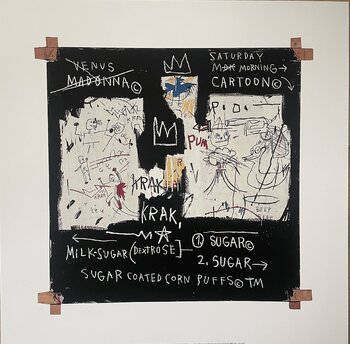 VENUS
MADONNA©
SATURDAY
MORNING→
CARTOON©
P.O..
PUM
KRAK
KRAK,
BEEP
MILK-SUGAR (DEXTROSE)
1. SUGAR©
2. SUGAR→
SUGAR COATED CORN PUFFS© TM